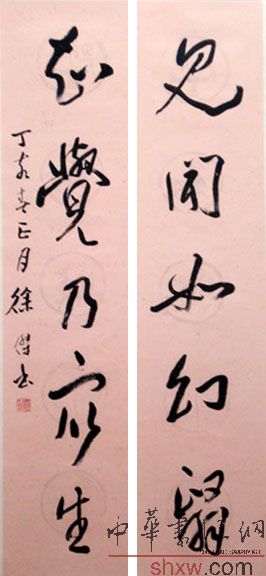 見聞如幻翳
知覺乃眾生
丁亥春正月徐傑書
中華書法網
shxw.com